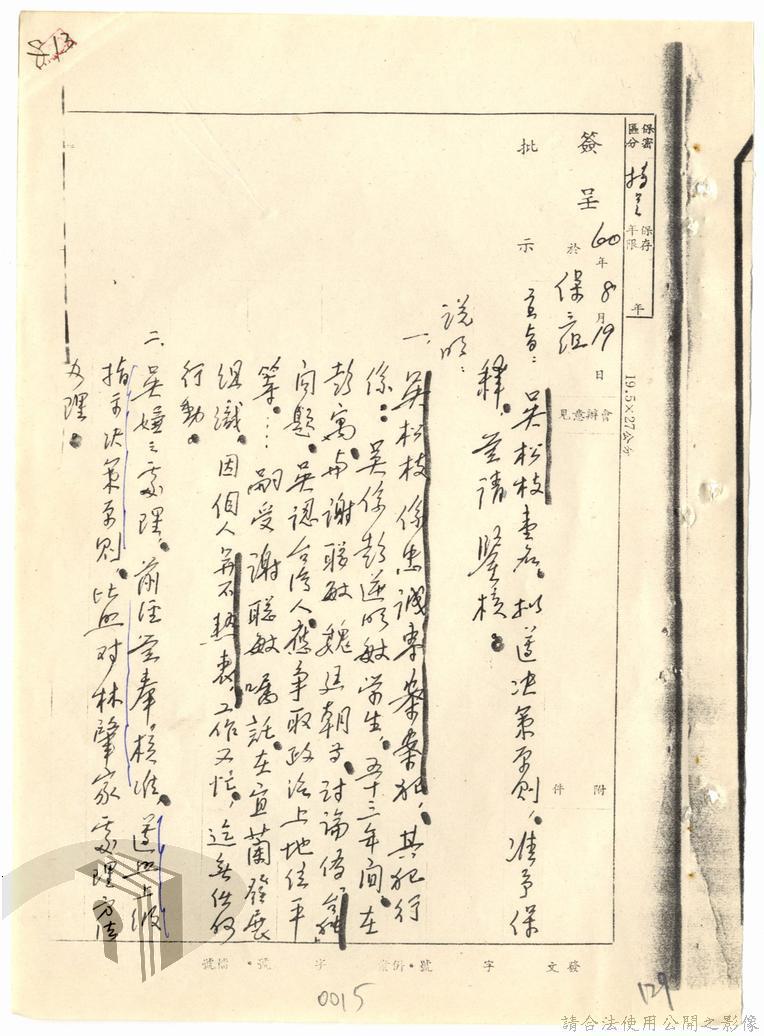 保密區分
持...
保存年限
年
19.5×27公分
簽呈
60年8月19日
於保二組
批示
會辦意見
附件
主旨：吳松枝壹名，擬遵決策原則，准予保
釋，呈請鑒核。
說明：
一、吳松枝係忠誠專案案犯，其犯行
係：吳係彭逆明敏學生，五十三年間，在
彭寓，與謝聰敏、魏廷朝等，討論偽台獨
問題，吳認台灣人應爭取政治上地位平
等…嗣受謝聰敏囑託，在宜蘭發展
組織，因個人并不熱衷，工作又忙，迄無任何
行動。
二、吳嫌之處理，前經呈奉核准，遵照上級
指示決策原則，比照對林肇家處理方法
辦理。
發文 字 號
字 號
檔號
0015
129
請合法使用公開之影像